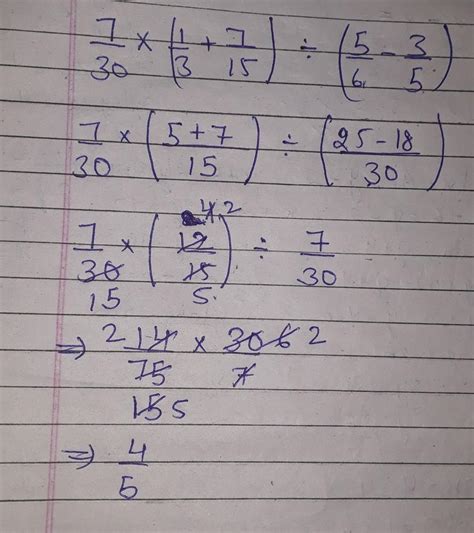 7/30 × (1/3 + 7/15) ÷ (5/6 - 3/5)
7/30 × (5+7/15) ÷ (25-18/30)
4 2
7/30 × (12/15) ÷ 7/30
15 5.
⇒ 2 14/75 × 30 6 2/7
15 5
⇒ 4/5